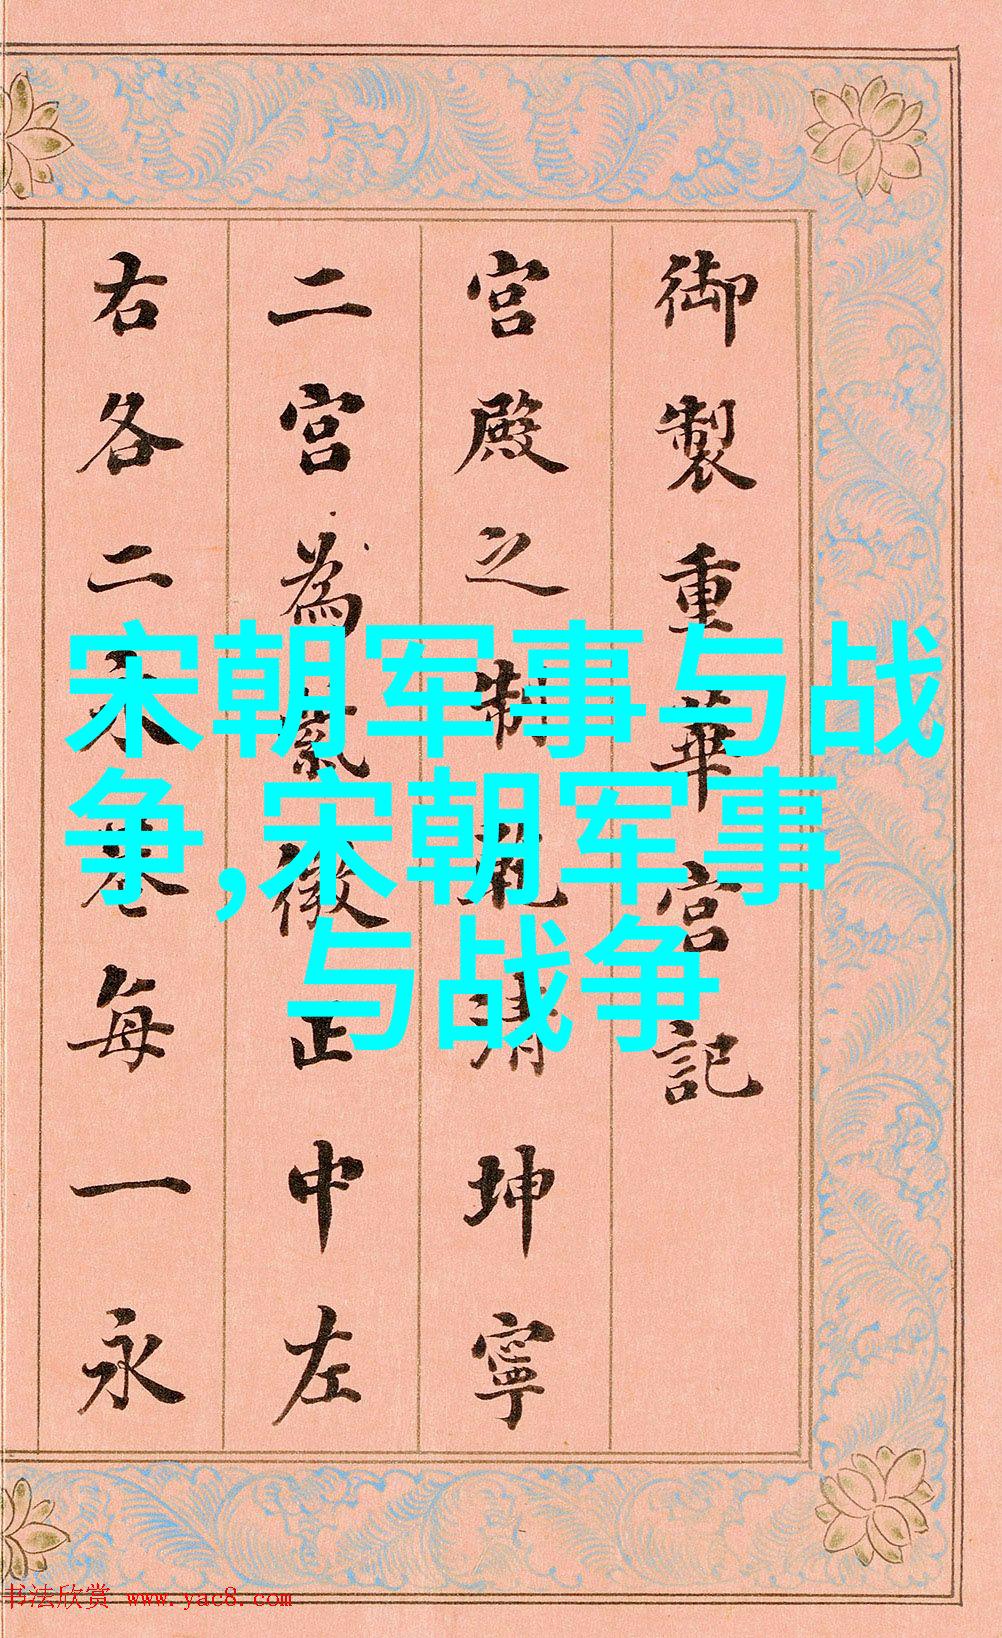 御製重華宮記
宮殿之制乾清坤寧
二宮為紫微正中左
右各二永巷每一永
宋朝军事与战
争,宋朝军事
与战争
书法欣赏 www.yac8.com